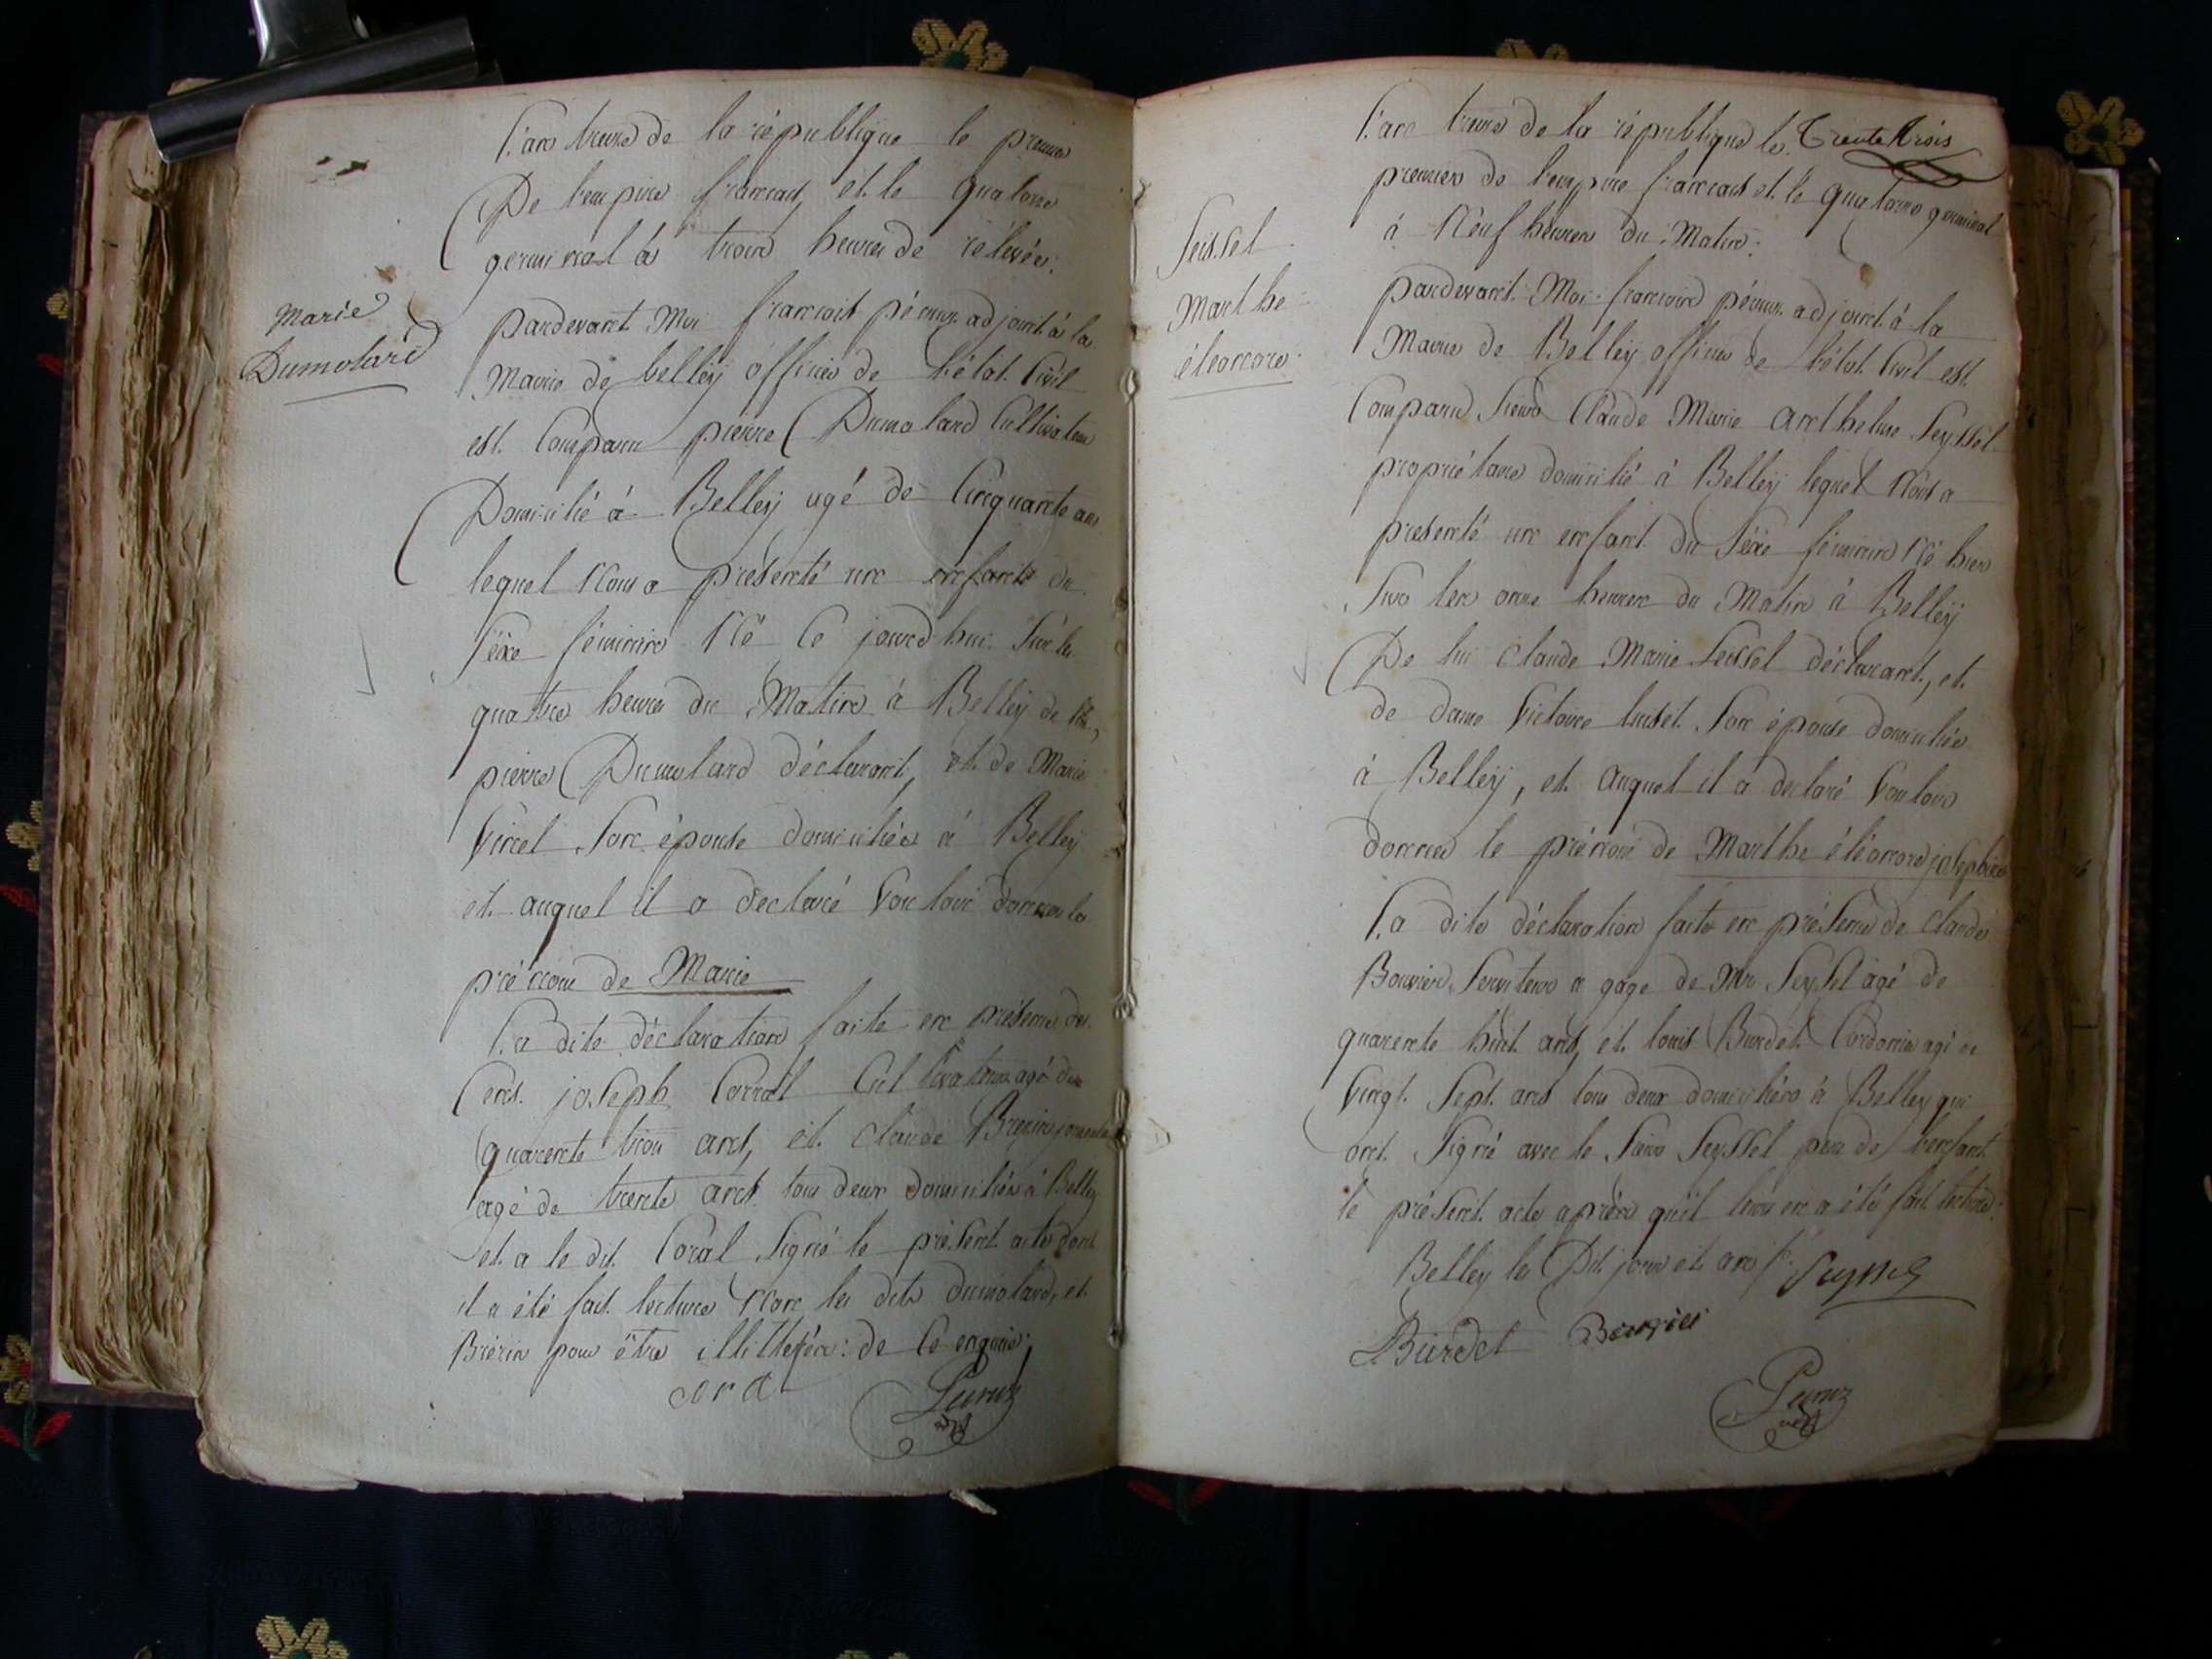 L'an treize de la république le premier
De l'empire francais, et le quatorze
germinal à trois heures de rélevée:
Marie
Dumolard
pardevant Moi francois péruz adjoint à la
Mairie de belley officier de l'état Civil
est Comparu pierre Dumolard Cultivateur
Domicilié à Belley agé de Cinquante ans
lequel Nous a presenté un enfant du
séxe féminin Né Ce jourd'hui sur les
quatre heures du Matin à Belley de lui,
pierre Dumolard déclarant, et de Marie
Vincel son épouse domiciliée à Belley
et auquel il a declaré Vouloir donner le
prénom de Marie
La dite déclaration faite en présence de
joseph Corral Cultivateur agé de
quarente trois ans, et Claude Brerin
agé de trente ans tous deux domiciliés à Belley
et a le dit Coral signé le présent acte dont
il a été fait lecture Non les dits dumolard, et
Brerin pour être illitterés: de Ce enquis:
coral
Peruz
adjt
L'an treize de la république le Trente trois
premier de l'empire francais et le quatorze germinal
à Neuf heures du Matin:
Seissel
Marthe
éléonore
pardevant Moi francois péruz adjoint à la
Mairie de Belley officier de l'état Civil est
Comparu sieur Claude Marie Anthelme Seyssel
propriétaire domicilié à Belley lequel Nous a
presenté un enfant du séxe féminin Né hier
sur les onze heures du Matin à Belley
De lui Claude Marie Seissel déclarant, et
de dame Victoire luiset son épouse domiciliée
à Belley, et auquel il a declaré Vouloir
donner le prénom de Marthe éléonore josephine
La dite déclaration faite en présence de Claude
Bouvier serviteur a gage de Mr Seyssel agé de
quarente huit ans, et louis Burdet Cordonnier agé de
Vingt sept ans tous deux domiciliés à Belley qui
ont signé avec le sieur Seyssel pere de l'enfant
le présent acte après qu'il leur en a été fait lecture:
Belley les Dit jour et an
Burdet Bouvier
Peruz
adjt